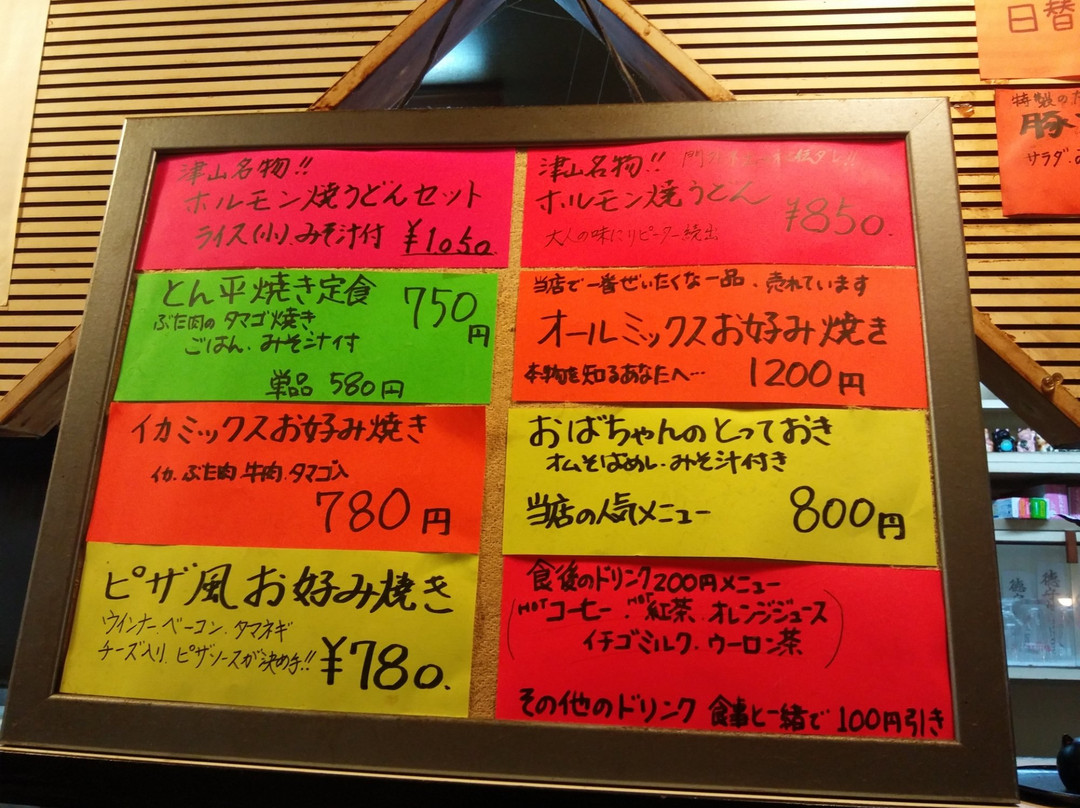 津山名物!!
ホルモン焼うどんセット
ライス(小)、みそ汁付 ¥1050.
津山名物!!
ホルモン焼うどん
¥850.
大人の味にリピーター続出
とん平焼き定食 750円
ぶた肉の タマゴ焼き
ごはん、みそ汁付
単品 580円
当店で一番ぜいたくな一品、売れています
オールミックスお好み焼き
本物を知るあなたへ… 1200円
イカミックスお好み焼き
イカ、ぶた肉、牛肉、タマゴ入
780円
おばちゃんのとっておき
オムそばめし、みそ汁付き
当店の人気メニュー 800円
ピザ風お好み焼き
ウインナー、ベーコン、タマネギ
チーズ入り、ピザソースが決め手!! ¥780.
食後のドリンク200円メニュー
(HOTコーヒー、HOT紅茶、オレンジジュース
イチゴミルク、ウーロン茶)
その他のドリンク 食事と一緒で100円引き
日替
特製の
豚
サラダ、